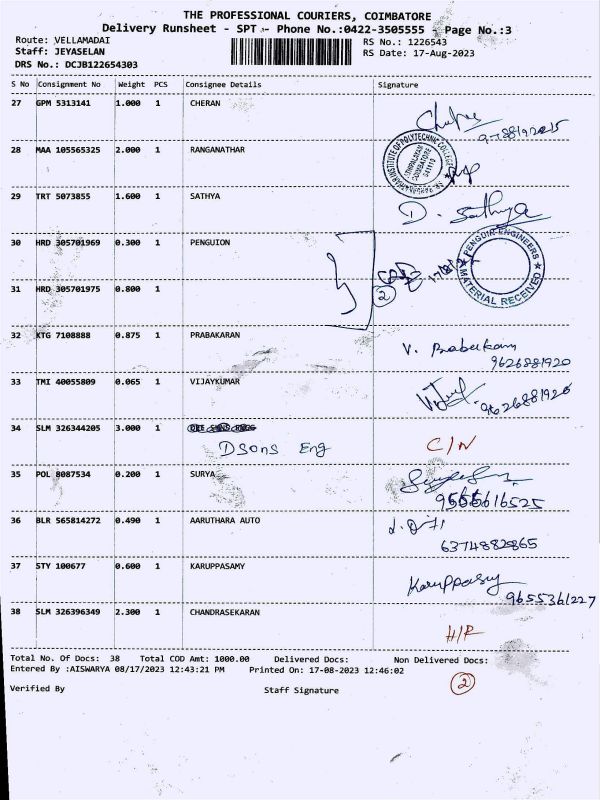 THE PROFESSIONAL COURIERS, COIMBATORE
Delivery Runsheet - SPT - Phone No.:0422-3505555 - Page No.:3
Route: VELLAMADAI RS No.: 1226543
Staff: JEYASELAN RS Date: 17-Aug-2023
DRS No.: DCJB122654303
S No Consignment No Weight PCS Consignee Details Signature
27 GPM 5313141 1.000 1 CHERAN
28 MAA 105565325 2.000 1 RANGANATHAR
29 TRT 5073855 1.600 1 SATHYA
D. Sathya
30 HRD 305701969 0.300 1 PENGUION
PENGUIN ENGINEERS
MATERIAL RECEIVED
2
31 HRD 305701975 0.800 1
32 KTG 7108888 0.875 1 PRABAKARAN
V. Prabakaran
9626881920
33 TMI 40055809 0.065 1 VIJAYKUMAR
9626881920
34 SLM 326344205 3.000 1
DSons Eng C/N
35 POL 8087534 0.200 1 SURYA
9566616525
36 BLR 565814272 0.490 1 AARUTHARA AUTO
6374882865
37 STY 100677 0.600 1 KARUPPASAMY
Karuppasamy
9655361227
38 SLM 326396349 2.300 1 CHANDRASEKARAN
H/R
Total No. Of Docs: 38 Total COD Amt: 1000.00 Delivered Docs: Non Delivered Docs:
Entered By :AISWARYA 08/17/2023 12:43:21 PM Printed On: 17-08-2023 12:46:02
2
Verified By Staff Signature